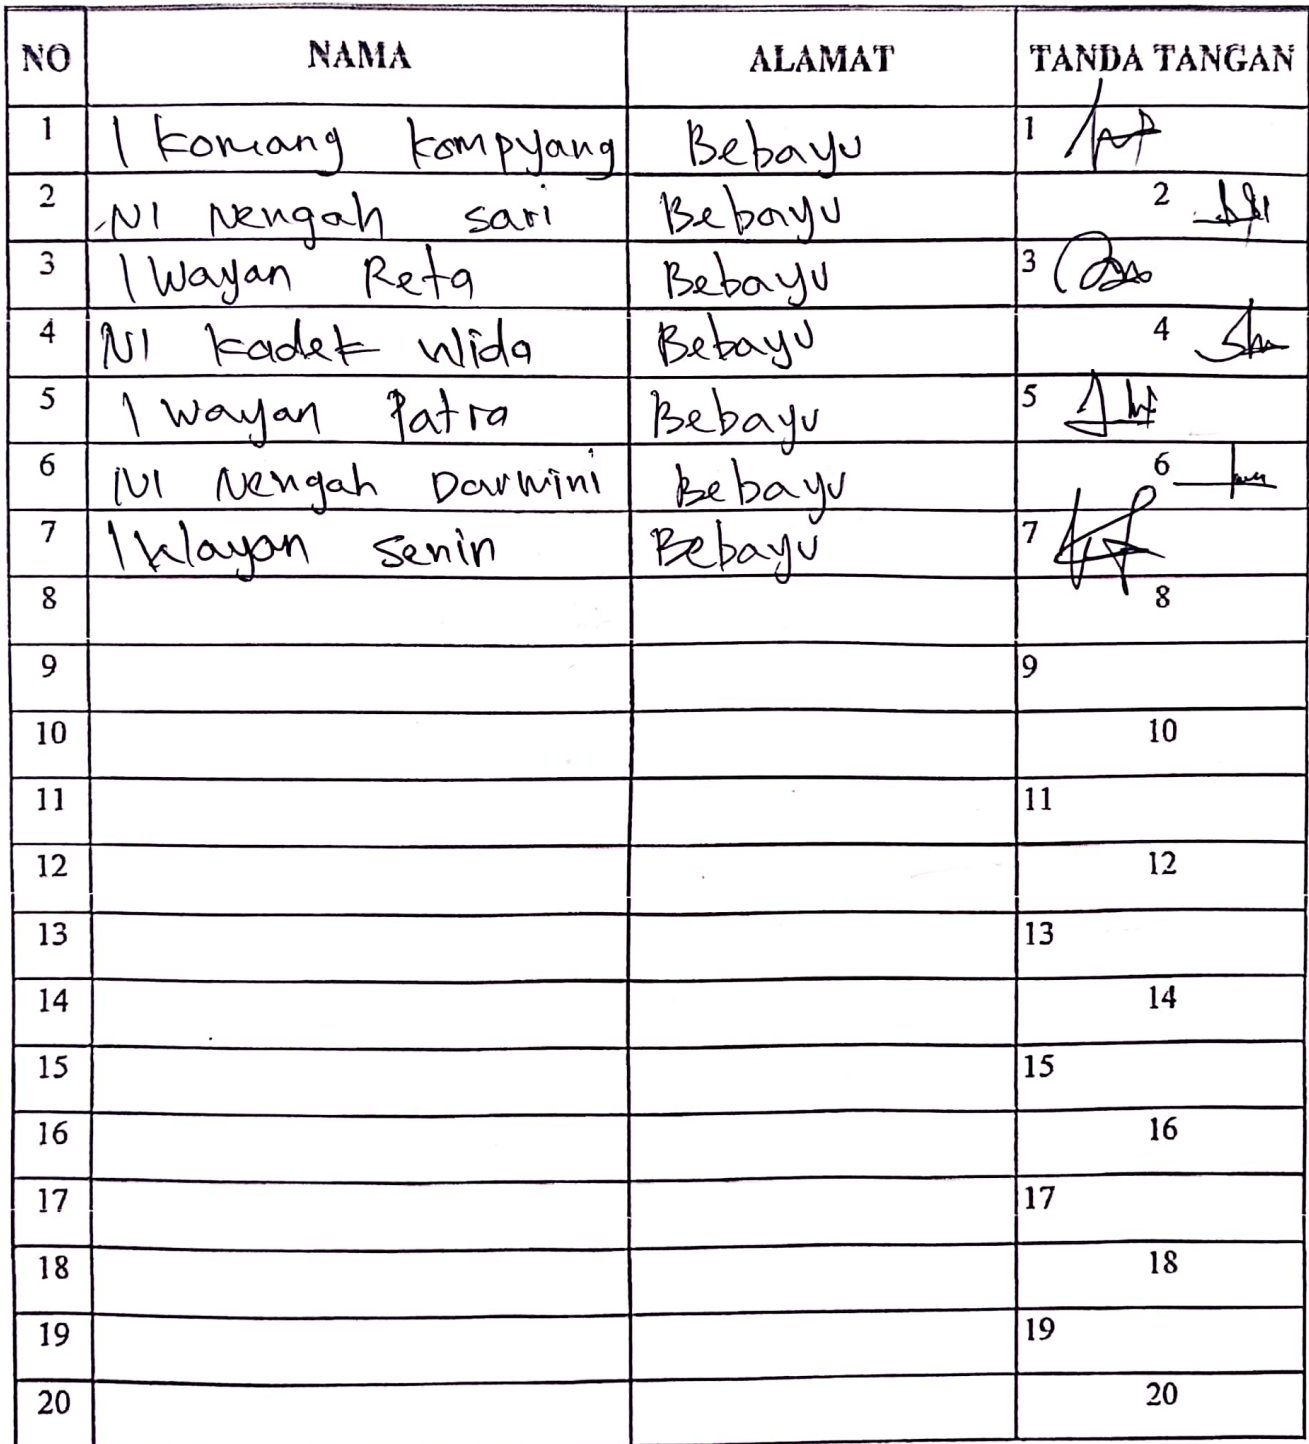 NO NAMA ALAMAT TANDA TANGAN
1 I Komang Kompyang Bebayu 1
2 NI Nengah sari Bebayu 2
3 I Wayan Reta Bebayu 3
4 NI Kadek Wida Bebayu 4
5 I Wayan Patra Bebayu 5
6 NI Nengah Darmini Bebayu 6
7 I Wayan Senin Bebayu 7
8 8
9 9
10 10
11 11
12 12
13 13
14 14
15 15
16 16
17 17
18 18
19 19
20 20